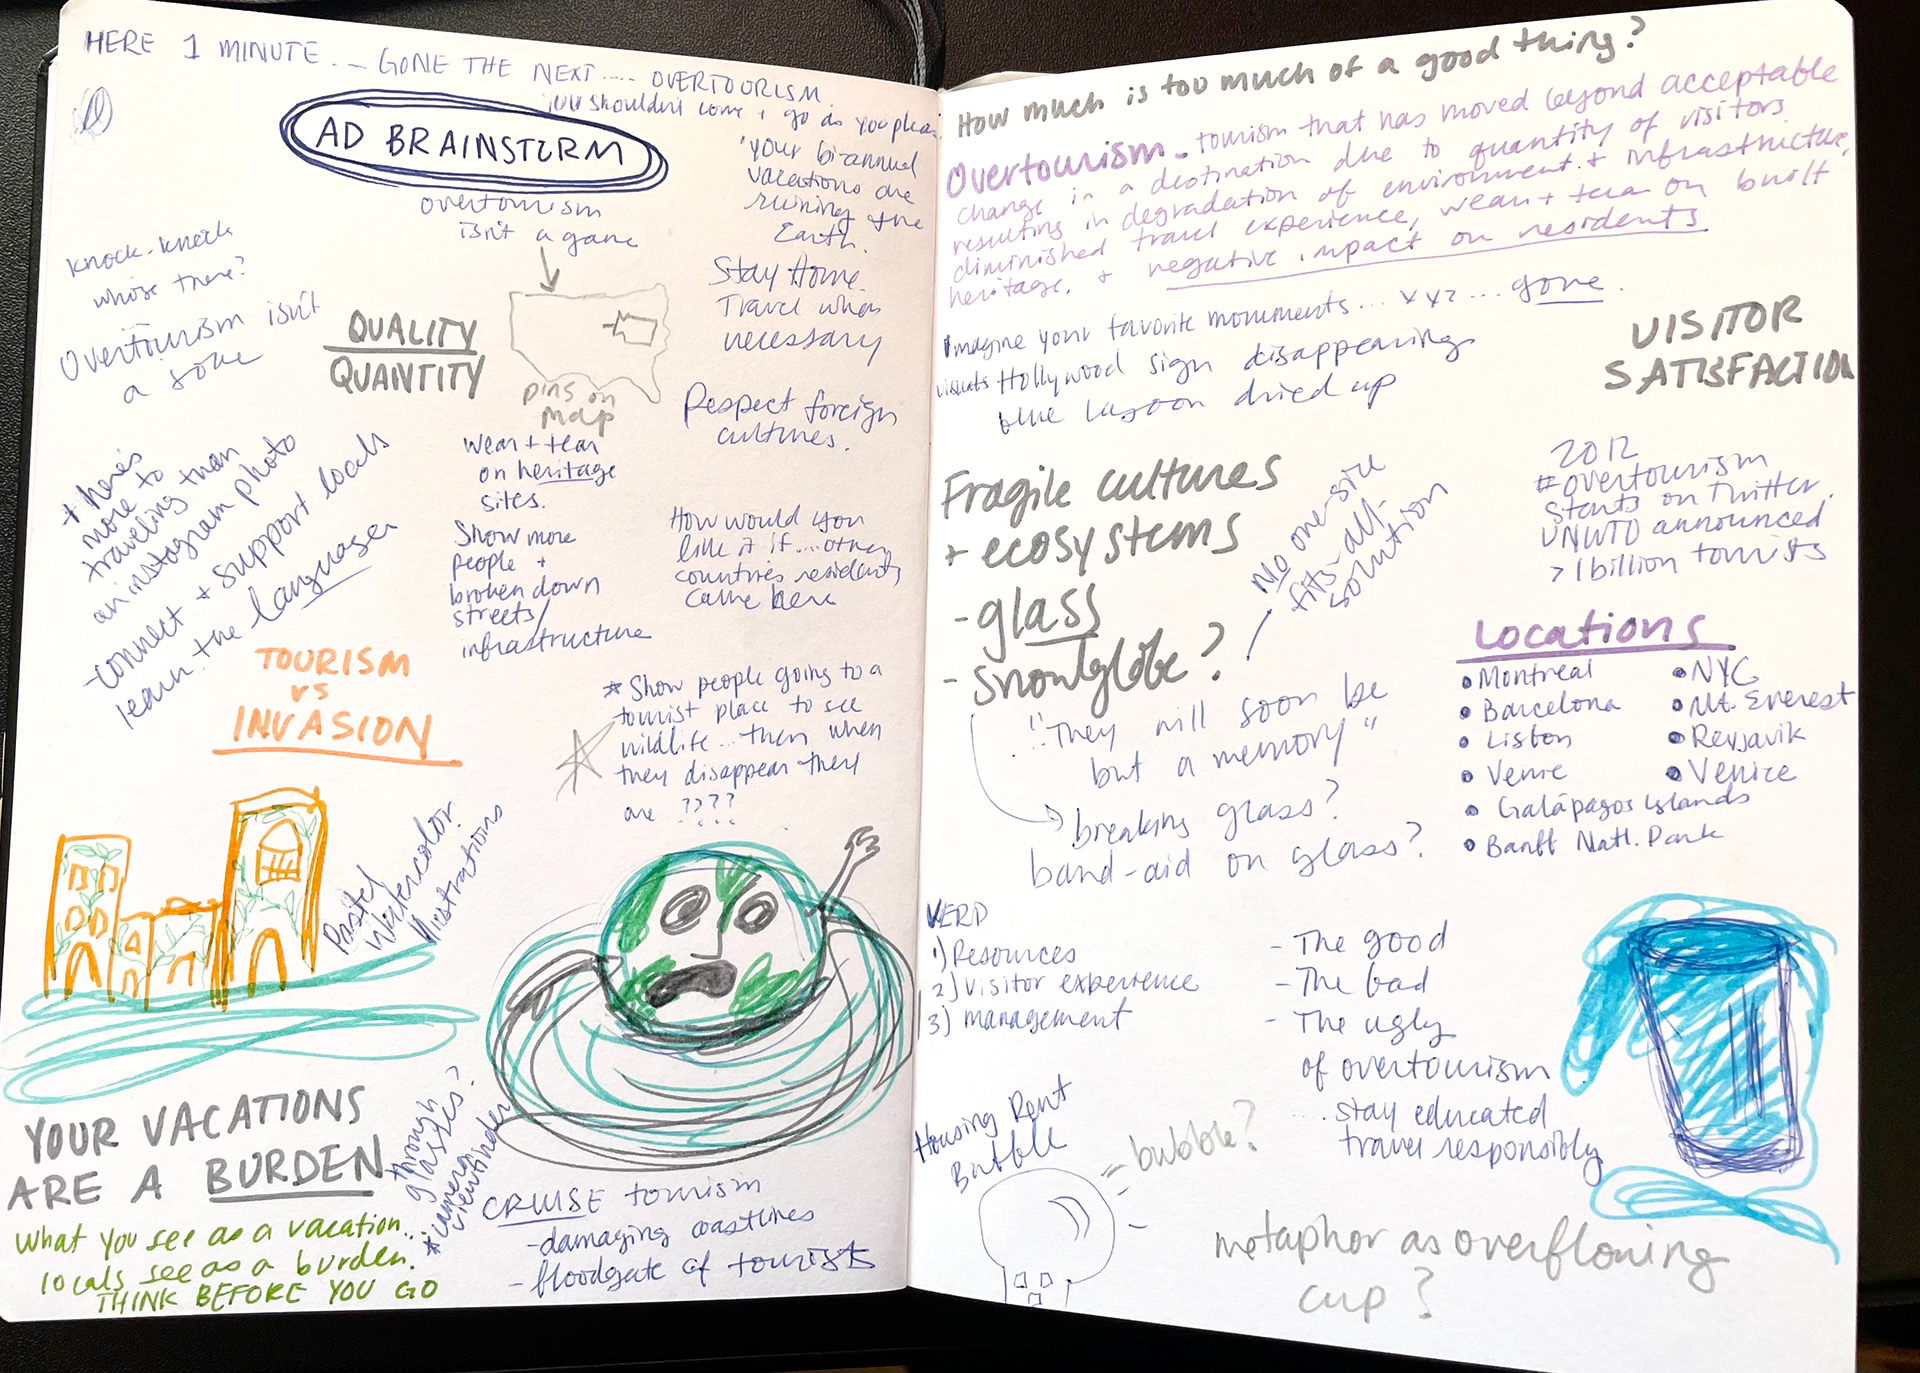 HERE 1 MINUTE... GONE THE NEXT.... OVERTOURISM.
you shouldn't come + go as you please
AD BRAINSTORM
overtourism
isn't a game
"your bi-annual
vacations are
ruining the
Earth.
Stay Home.
Travel when
necessary
Respect foreign
cultures.
Knock-knock
whose there?
Overtourism isn't
a joke
QUALITY
QUANTITY
pins on
map
wear + tear
on heritage
sites.
Show more
people +
broken down
streets/
infrastructure
How would you
like it if... other
countries residents
came here
there's
more to
traveling than
an instagram photo
-connect + support locals
learn the language
TOURISM
vs
INVASION
* Show people going to a
tourist place to see
wildlife... then when
they disappear they
are ????
Pastel
Watercolor
Illustrations
YOUR VACATIONS
ARE A BURDEN
What you see as a vacation...
locals see as a burden.
THINK BEFORE YOU GO
through
glasses?
*camera
viewfinder
CRUISE tourism
-damaging coastlines
- floodgate of tourists
How much is too much of a good thing?
Overtourism - tourism that has moved beyond acceptable
change in a destination due to quantity of visitors
resulting in degradation of environment + infrastructure,
diminished travel experience, wear + tear on built
heritage, + negative impact on residents
Imagine your favorite monuments... xyz... gone.
visuals Hollywood sign disappearing
blue lagoon dried up
VISITOR
SATISFACTION
Fragile cultures
+ ecosystems
- glass
- snowglobe?
No one-size
fits-all-
solution
2012
#overtourism
starts on Twitter.
UNWTO announced
>1billion tourists
"They will soon be
but a memory"
breaking glass?
band-aid on glass?
Locations
• Montreal
• Barcelona
• Lisbon
• Venice
• Galápagos Islands
• Banff Natl. Park
• NYC
• Mt. Everest
• Reyjavik
• Venice
VERP
1) Resources
2) visitor experience
3) management
- The good
- The bad
- The ugly
of overtourism
... stay educated
travel responsibly
Housing Rent
Bubble
bubble?
metaphor as overflowing
cup?